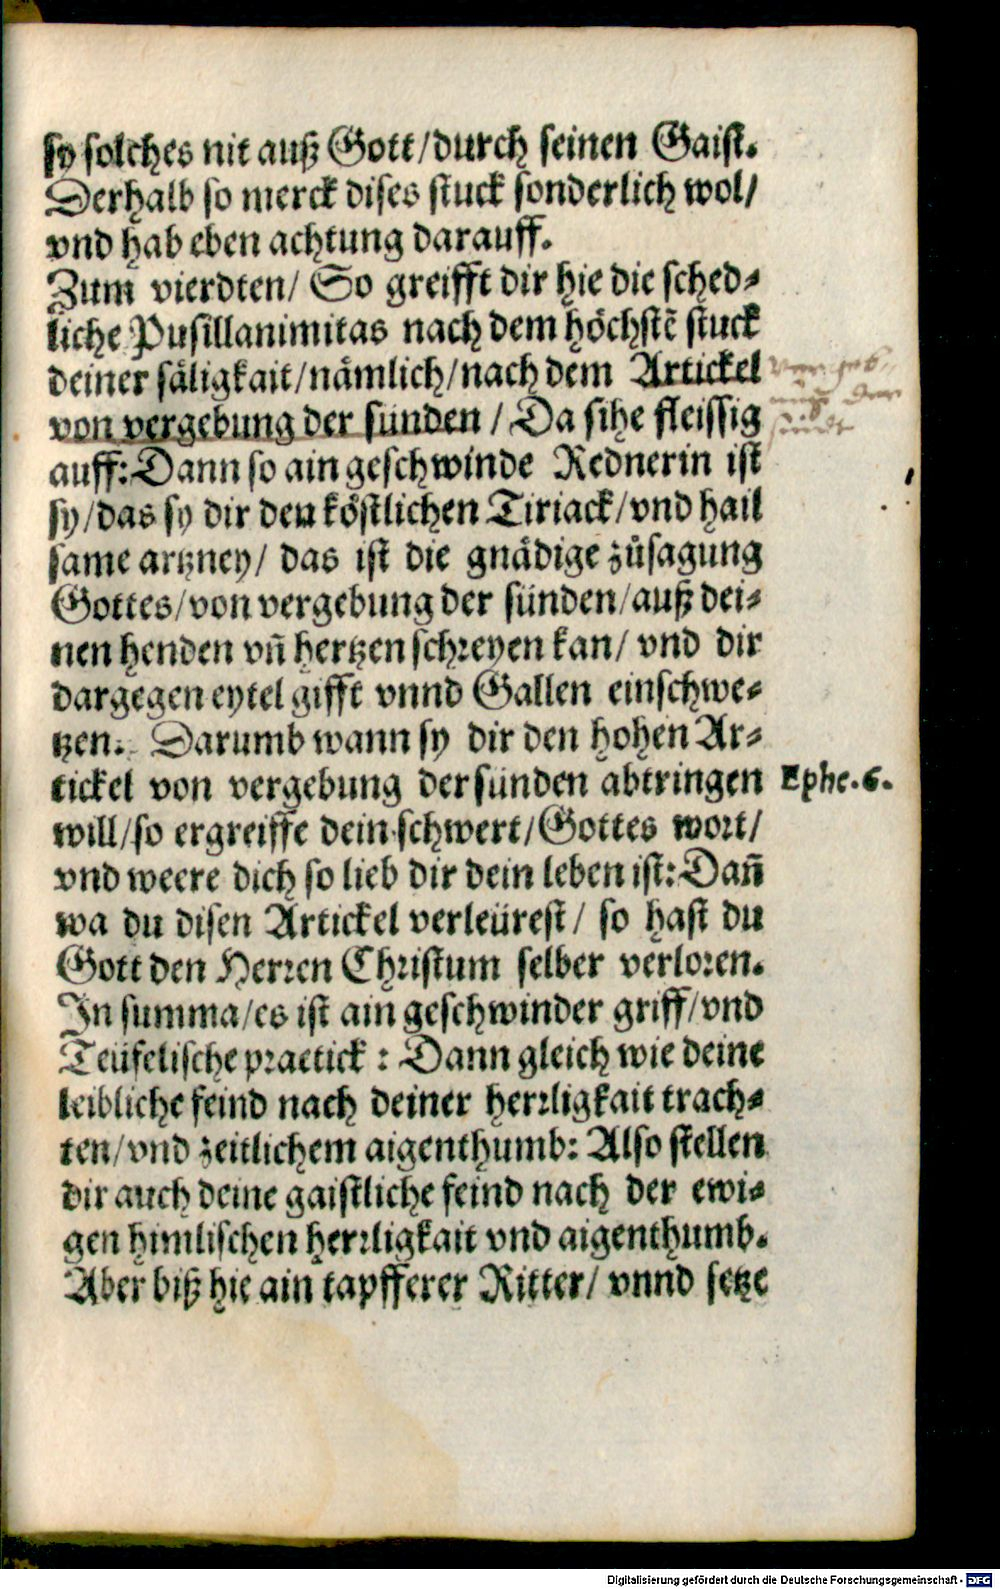 sy solches nit auß Gott/durch seinen Gaist.
Derhalb so merck dises stuck sonderlich wol/
vnd hab eben achtung darauff.
Zum vierdten/ So greifft dir hie die sched⸗
liche Pusillanimitas nach dem höchstē stuck
deiner säligkait/nämlich/nach dem Artickel
von vergebung der sünden / Da sihe fleissig
auff: Dann so ain geschwinde Rednerin ist
sy/das sy dir den köstlichen Tiriack/vnd hail
same artzney/ das ist die gnädige zůsagung
Gottes/von vergebung der sünden/auß dei⸗
nen henden vñ hertzen schreyen kan/ vnd dir
dargegen eytel gifft vnnd Gallen einschwe⸗
tzen. Darumb wann sy dir den hohen Ar⸗
tickel von vergebung der sünden abtringen
will/so ergreiffe dein schwert/Gottes wort/
vnd weere dich so lieb dir dein leben ist: Dañ
wa du disen Artickel verleürest/ so hast du
Gott den Herren Christum selber verloren.
In summa/es ist ain geschwinder griff/vnd
Teüfelische practick : Dann gleich wie deine
leibliche feind nach deiner herrligkait trach⸗
ten/vnd zeitlichem aigenthumb: Also stellen
dir auch deine gaistliche feind nach der ewi⸗
gen himlischen herrligkait vnd aigenthumb.
Aber biß hie ain tapfferer Ritter/ vnnd setze
Ephe. 6.
Digitalisierung gefördert durch die Deutsche Forschungsgemeinschaft - DFG